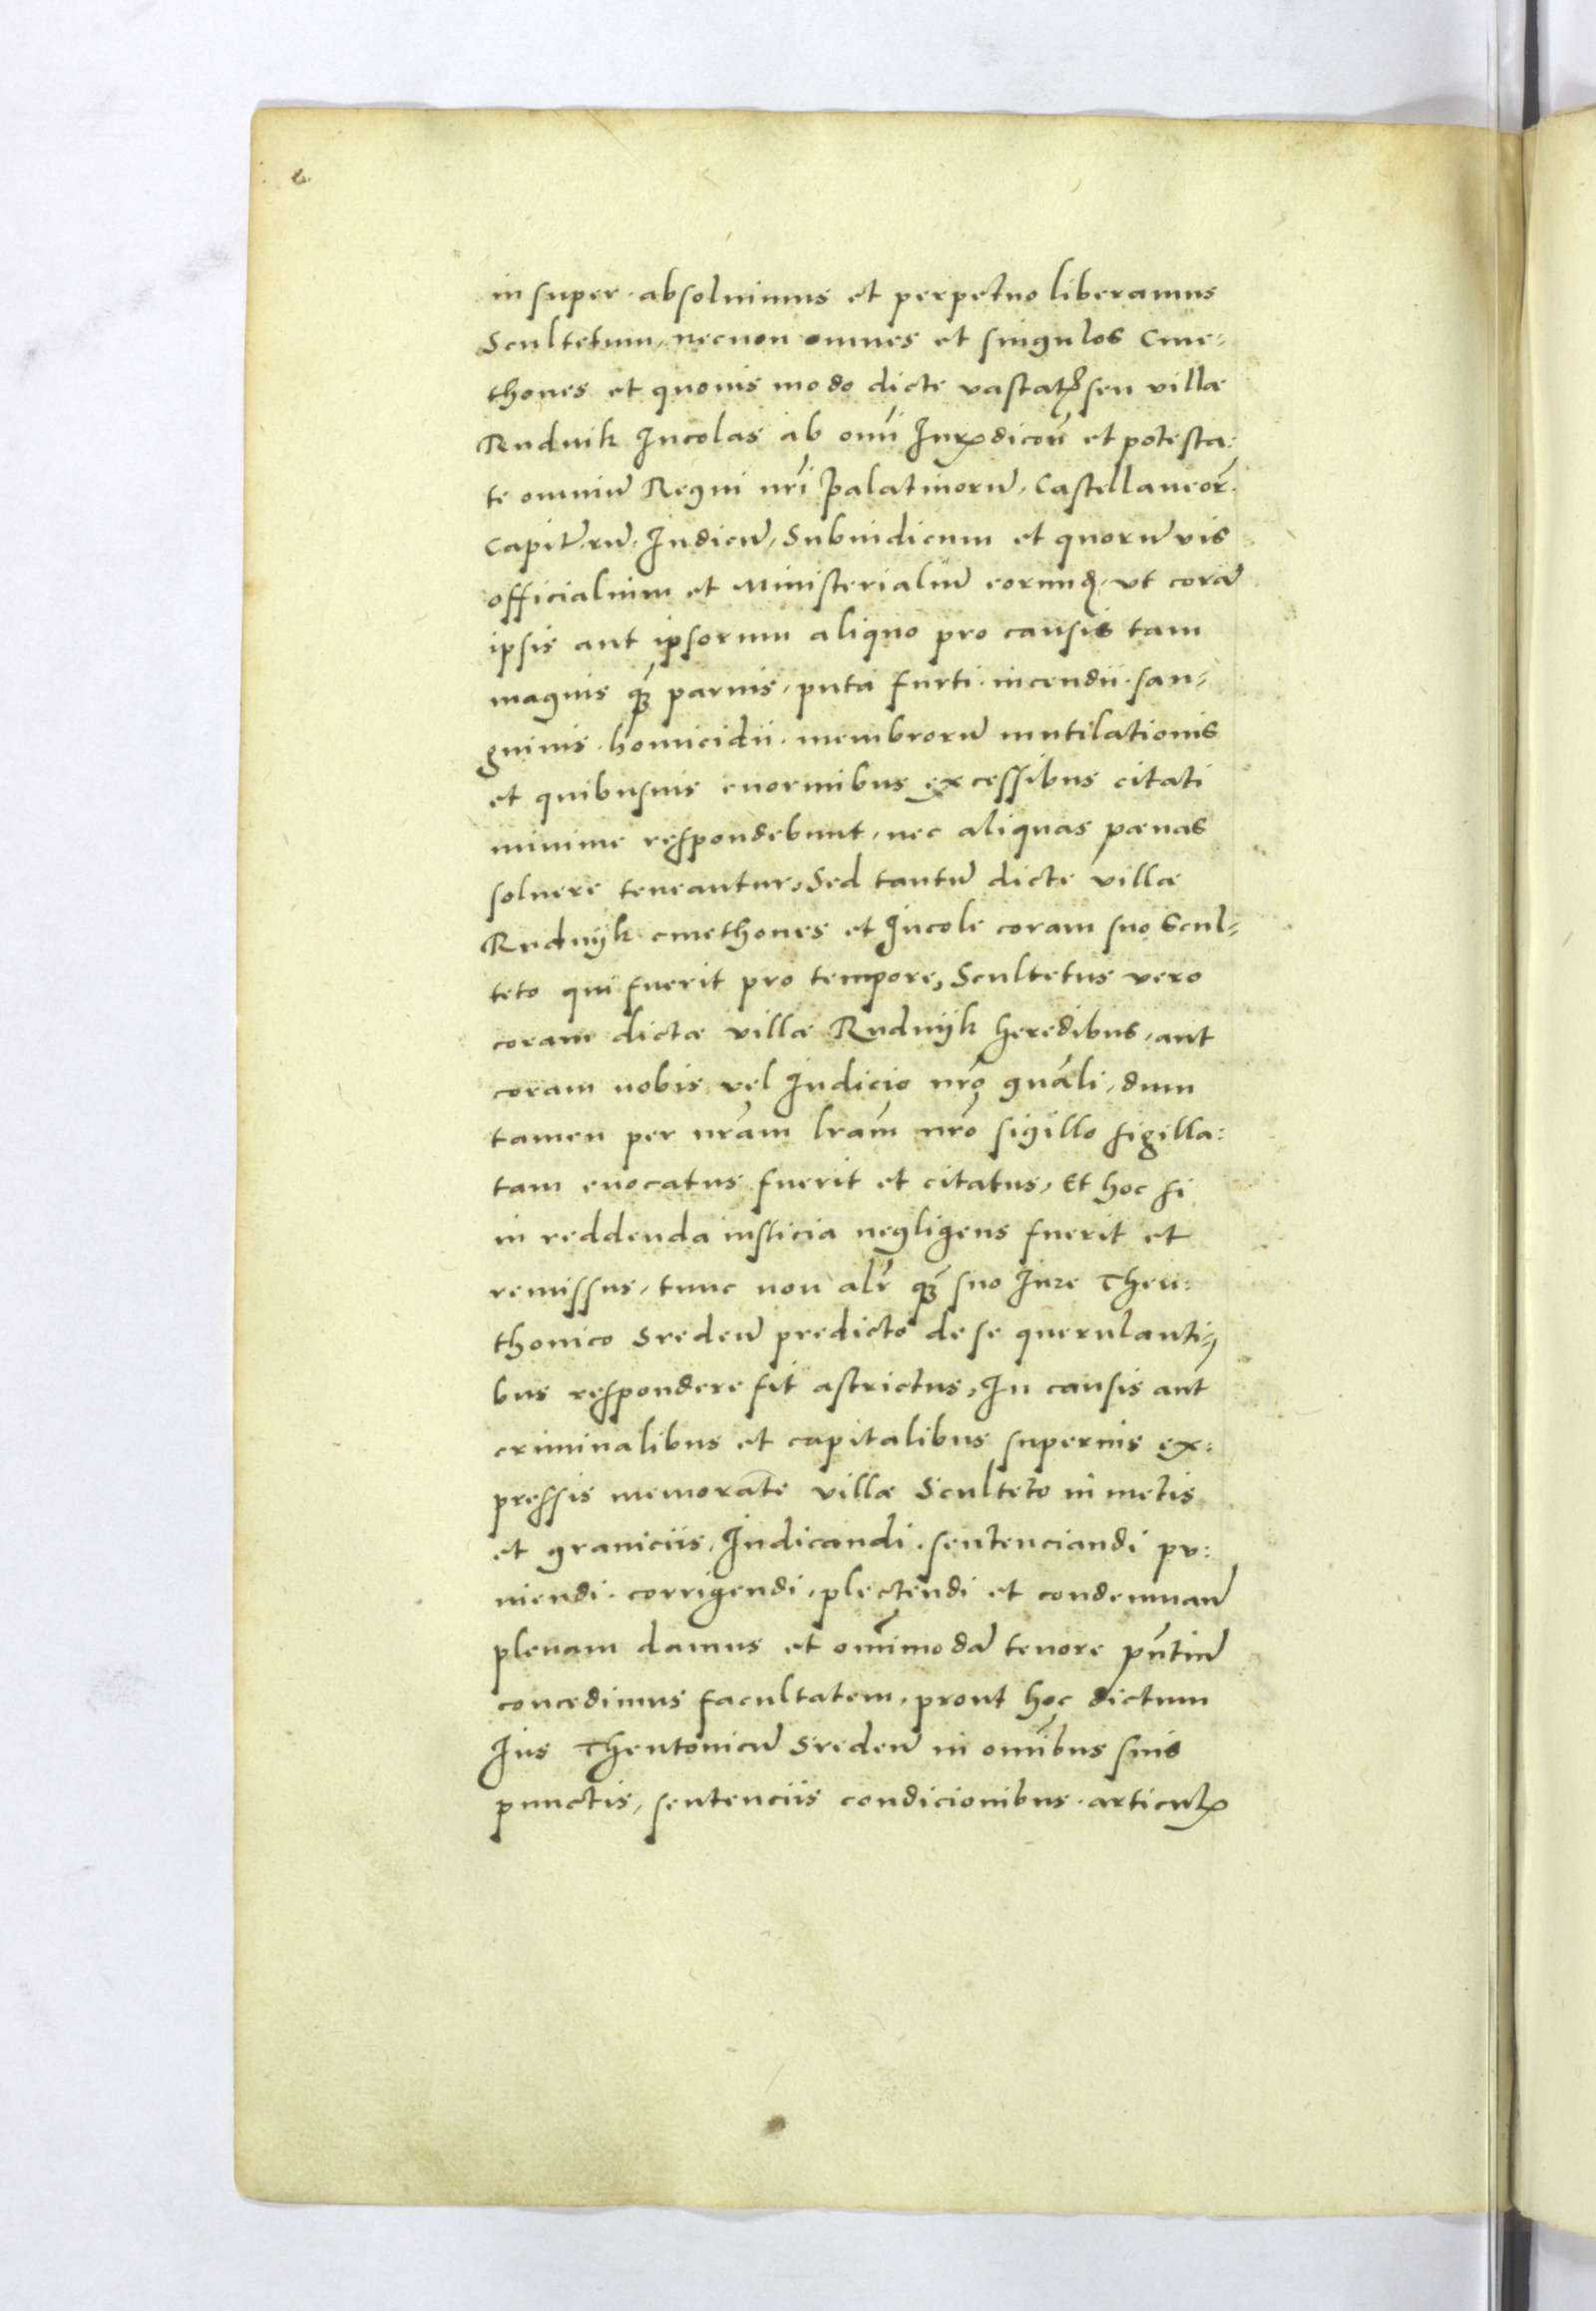 in super · absoluimus et perpetuo liberamus
Scultetum, necnon omnes et singulos Cme-
thones et quouis modo dicte vastat seu villæ
Rudnik Incolas ab omi Iurisdicoñ et potesta:
te omniũ Regni nr̃i Palatinorũ, Castellaneor̃.
Capit̃.rũ. Iudicũ, Subiudicum et quorũ vis
officialium et Ministerialiũ eorumq, vt corã
ipsis aut ipsorum aliquo pro causis tam
magnis q̃ paruis, puta furti. incendii. san-
guinis. homicidii. membrorũ mutilationis
et quibusuis enormibus excessibus citati
minime respondebunt, nec aliquas pœnas
soluere teneantur, Sed tantũ dicte villæ
Rudnijk cmethones et Incole coram suo Scul-
teto qui fuerit pro tempore, Scultetus vero
coram dictæ villæ Rudnijk heredibus, aut
coram nobis vel Iudicio nr̃o gnãli, dum
tamen per nr̃am lr̃am nr̃o sigillo sigilla:
tam euocatus fuerit et citatus, Et hoc si
in reddenda iusticia negligens fuerit et
remissus, tunc non alr̃ q̃ suo Iure Theu:
thonico Sredeñ predicto de se querulanti-
bus respondere sit astrictus, In causis aut
criminalibus et capitalibus superius ex:
pressis memorate villæ Sculteto in metis
et graniciis, Iudicandi. sentenciandi pu:
niendi. corrigendi, plectendi et condemnañ
plenam damus et om̃imodã tenore pñtiũ
concedimus facultatem, prout hoc dictum
Ius Theutonicũ Sredeñ in om̃ibus suis
punctis, sentenciis condicionibus. articul